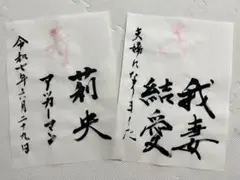 寿
我妻
結愛
夫婦になりました
寿
莉央
アッカーマン
令和七年六月二十九日